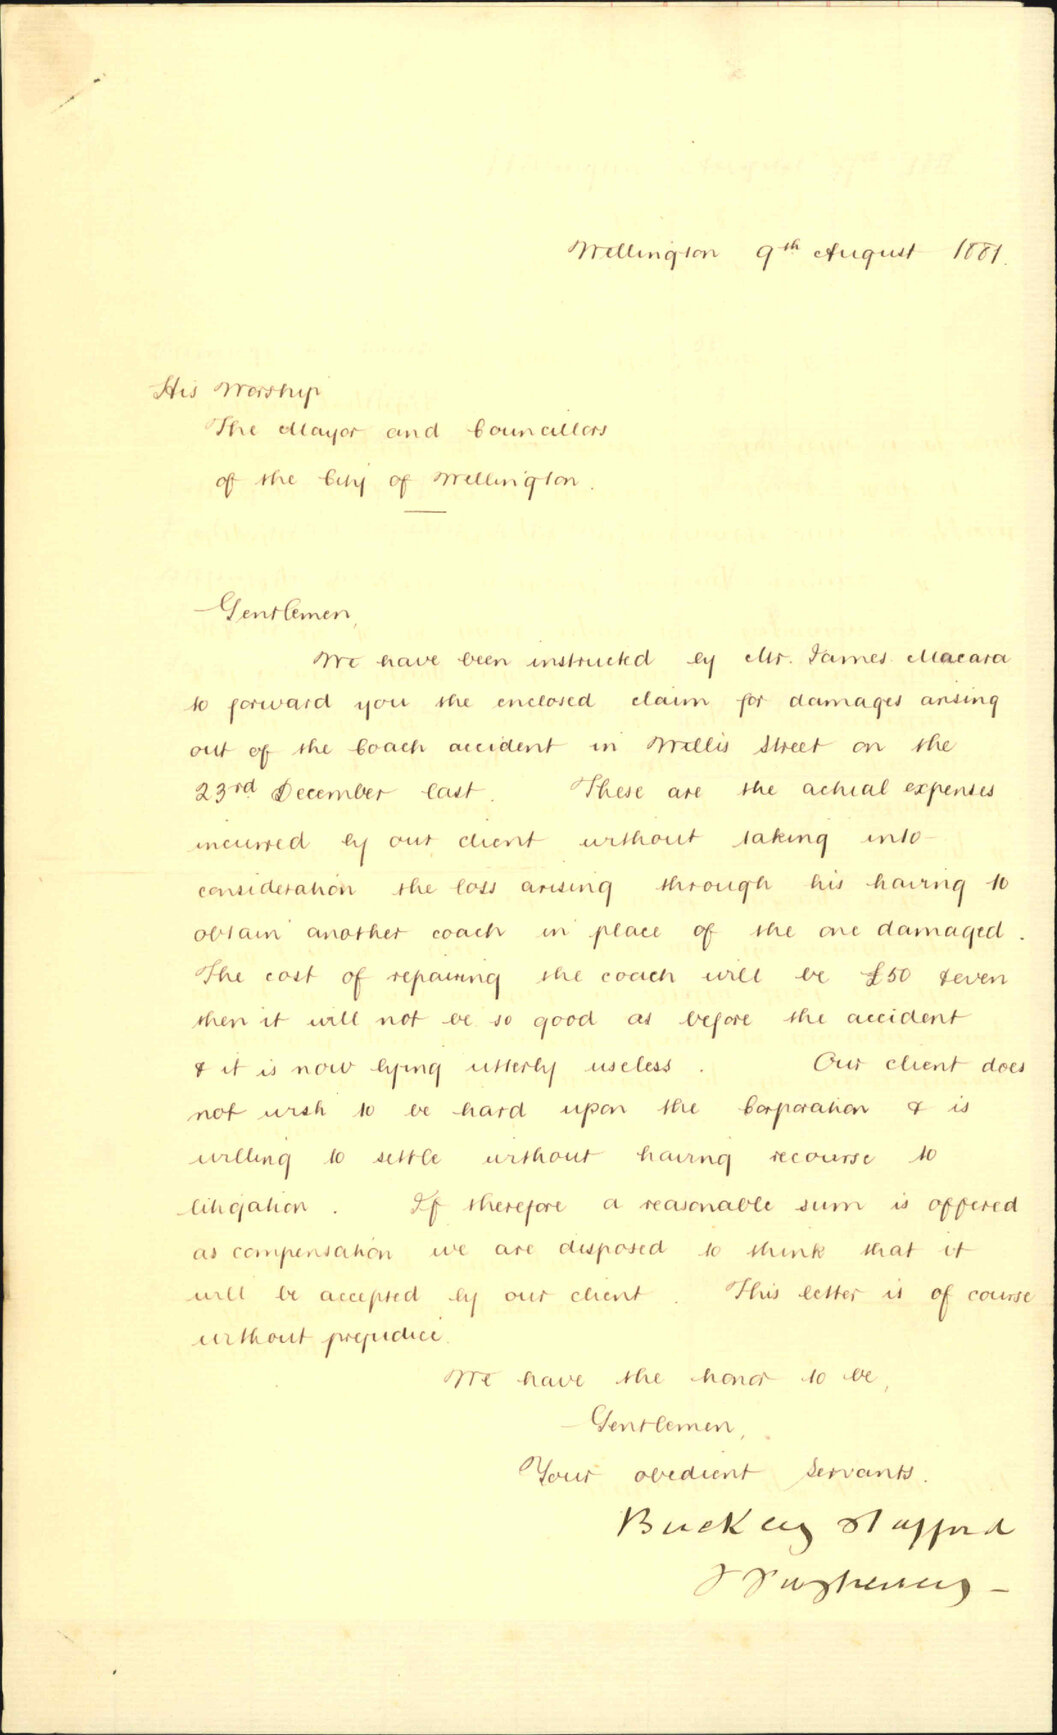 Wellington 9th August 1881.
His Worship
The Mayor and Councillors
of the City of Wellington.
Gentlemen,
We have been instructed by Mr. James Macara
to forward you the enclosed claim for damages arising
out of the Coach accident in Willis Street on the
23rd December last. These are the actual expenses
incurred by our client without taking into
consideration the loss arising through his having to
obtain another coach in place of the one damaged.
The cost of repairing the coach will be £50 & even
then it will not be so good as before the accident
& it is now lying utterly useless. Our client does
not wish to be hard upon the Corporation & is
willing to settle without having recourse to
litigation. If therefore a reasonable sum is offered
as compensation we are disposed to think that it
will be accepted by our client. This letter is of course
without prejudice.
We have the honor to be,
Gentlemen,
Your obedient Servants.
Buckley Stafford